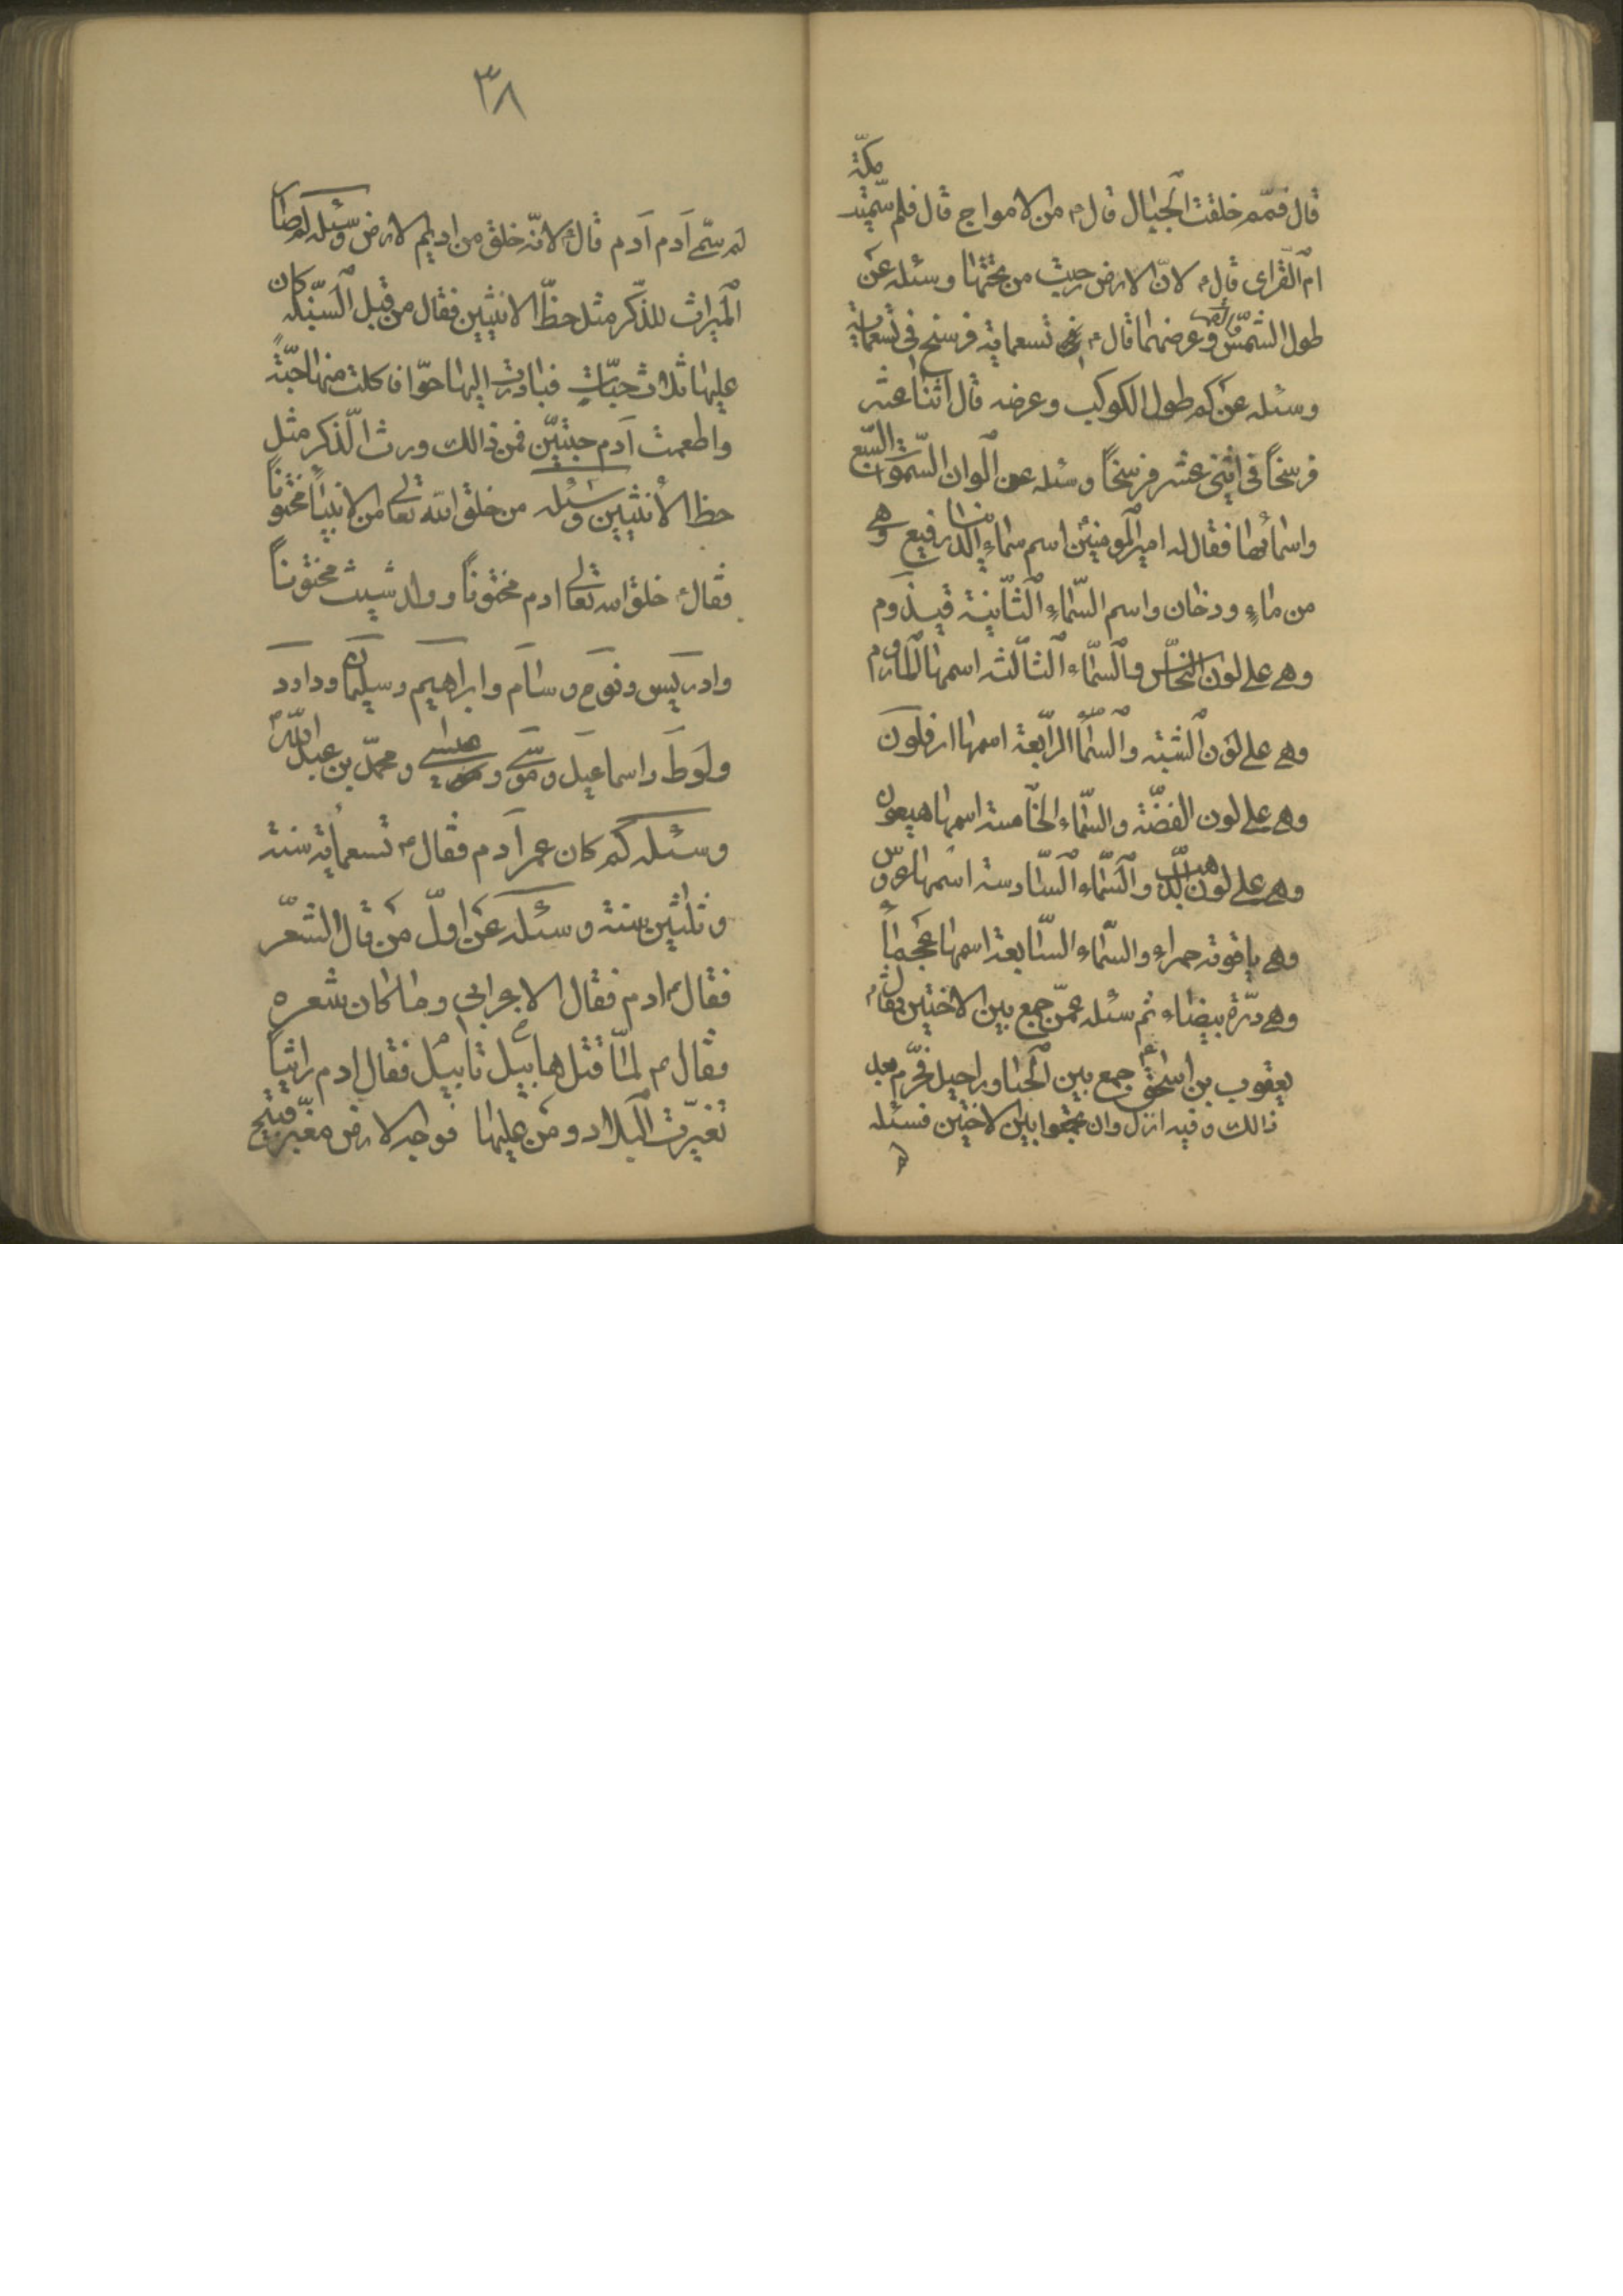 مكّة
قال فممّ خلقت الجبال قال م من الامواج قال فلم سمّيت
ام القرى قال م لانّ الارض دحيت من تحتها وسئله عن
طول الشمس والقمر وعرضهما قال م تسعماية فرسخ في تسعماية
وسئله عن كم طول الكوكب وعرضه قال اثنا عشر
فرسخاً في اثنى عشر فرسخاً وسئله عن الوان السّموات السّبع
واسمائها فقال له امير المومنين اسم سماء الدنيا رفيع وهي
من ماءٍ ودخان واسم السّماء الثّانية قيدوم
وهي على لون النحاس والسّماء الثالثه اسمها الماروم
وهي على لون الشّبه والسّماء الرّابعة اسمها ارفلون
وهي على لون الفضّة والسّماء الخامسة اسمها هيعون
وهي على لون الذّهب والسّماء السّادسة اسمها عروس
وهي ياقوتة حمراء والسّماء السّابعة اسمها عجماء
وهي درّة بيضاء ثم سئله عمّن جمع بين الاختين فقال م
يعقوب بن اسحق م جمع بين حبار وراحيل فحرّم بعد
ذالك وفيه انزل وان تجمعوا بين الاختين فسئله
لم
٣٨
لم سمّى آدم آدم قال م لانّه خلق من اديم الارض وسئله لم صار
الميراث للذّكر مثل حظّ الانثيين فقال من قبل السّنبله كان
عليها ثلاث حبّاتٍ فبادرت اليها حوّا فاكلت منها حبّة
واطعمت آدم حبّتين فمن ذالك ورث الذّكر مثل
حظ الأنثيين وسئله من خلق الله تعالى من الانبياً مختوناً
فقال م خلق الله تعالى ادم مختوناً وولد شيث مختوناً
وادريس ونوح وسام وابراهيم وسليمان وداود
ولوط واسماعيل وموسى وعيسى ومحمّد بن عبد اللّه م
وسئله كم كان عمر آدم فقال م تسعمأية سنة
وثلثين سنة وسئله عن اوّل من قال الشعر
فقال م ادم فقال الاعرابي وما كان شعره
فقال م لمّا قتل هابيل قابيل فقال ادم راثياً
تغيّرت البلاد ومن عليها فوجه الارض مغبّر قبيح